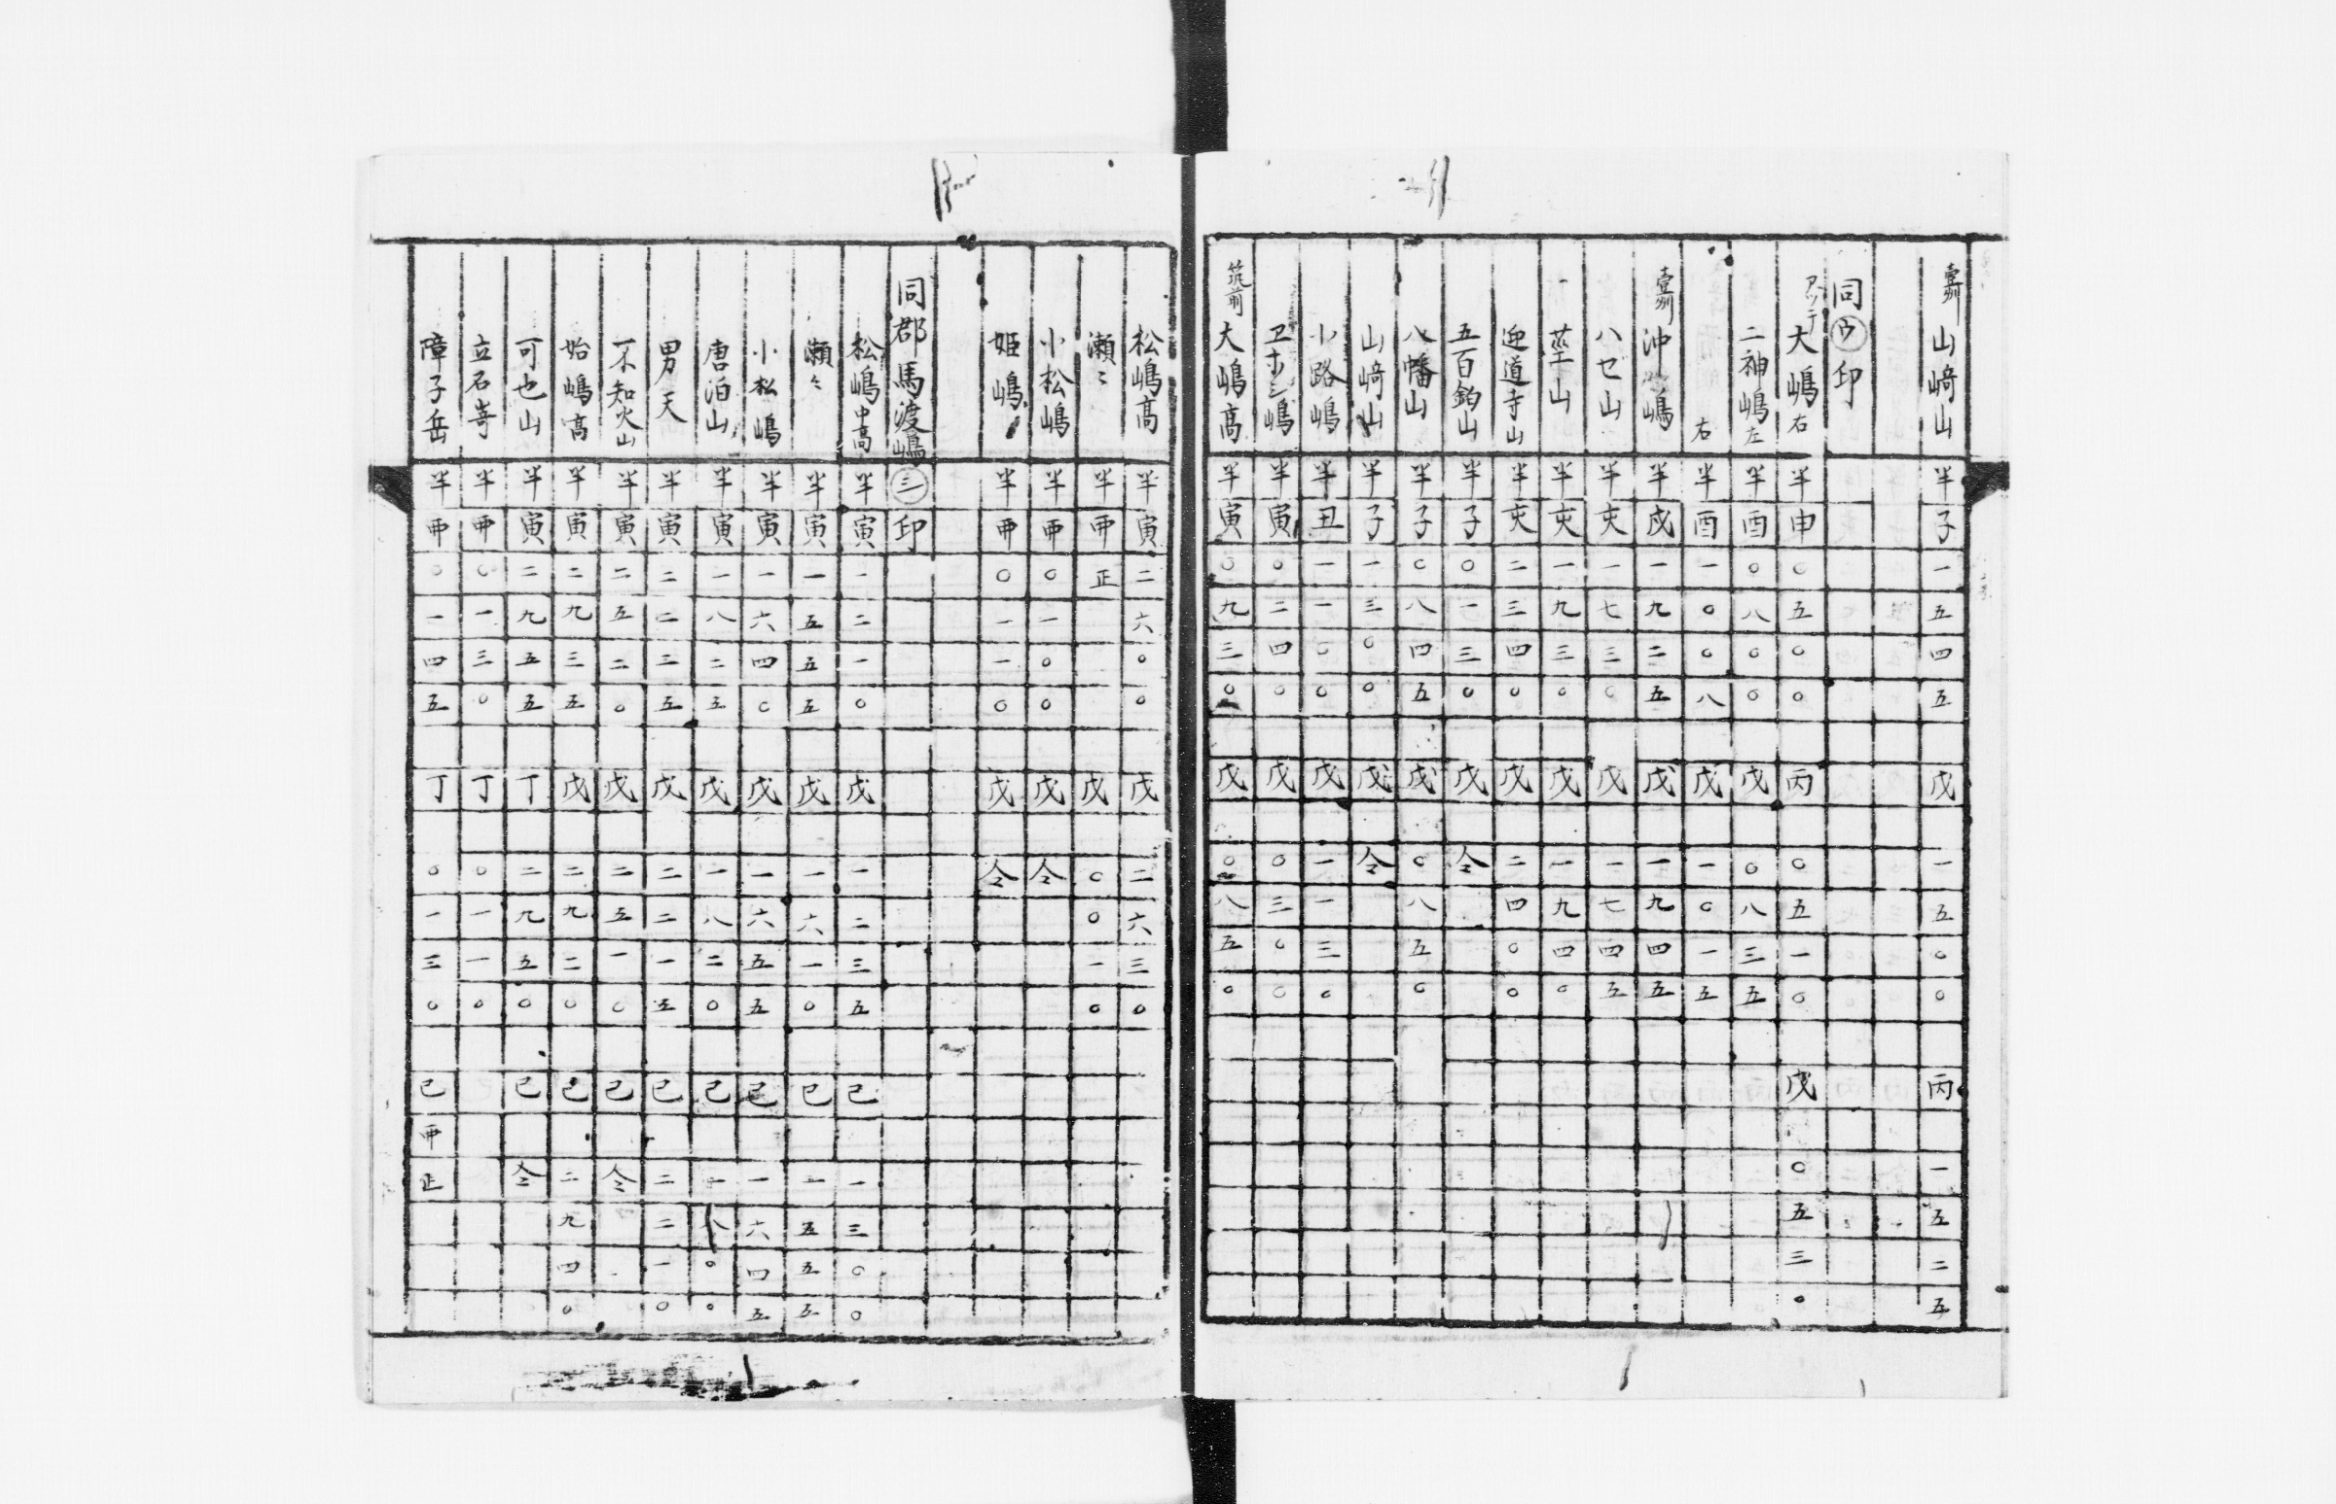 壹州 山﨑山 半子一五四五 戊一五〇〇 丙一五二五
同㋒印
アツチ大嶋右 半申〇五〇〇 丙〇五一〇 戊〇五三〇
二神嶋左 半酉〇八〇〇 戊〇八三五
右 半酉一〇〇八 戊一〇一五
壹州 沖嶋 半戌一九二五 戊一九四五
八セ山 半亥一七三〇 戊一七四五
莖山 半亥一九三〇 戊一九四〇
迎道寺山 半亥二三四〇 戊二四〇〇
五百鈎山 半子〇一三〇 戊仝
八幡山 半子〇八四五 戊〇八五〇
山﨑山 半子一三〇〇 戊仝
小路嶋 半丑一一〇〇 戊一一三〇
ヱホシ嶋 半寅〇二四〇 戊〇三〇〇
筑前 大嶋髙 半寅〇九三〇 戊〇八五〇
松嶋髙 半寅二六〇〇 戊二六三〇
瀬〻 半卯正 戊〇〇一〇
小松嶋 半卯〇一〇〇 戊仝
姫嶋 半卯〇一一〇 戊仝
同郡馬渡嶋㊂印
松嶋中髙 半寅一二一〇 戊一二三五 己一三〇〇
瀬〻 半寅一五五五 戊一六一〇 己一五五五
小松嶋 半寅一六四〇 戊一六五五 己一六四五
唐泊山 半寅一八二五 戊一八二〇 己一八〇〇
男天 半寅二二三五 戊二二一五 己二二一〇
不知火山 半寅二五二〇 戊二五一〇 己仝
始嶋髙 半寅二九三五 戊二九二〇 己二九四〇
可也山 半寅二九五五 丁二九五〇 己仝
立石﨑 半卯〇一三〇 丁〇一一〇
障子岳 半卯〇一四五 丁〇一三〇 己卯正